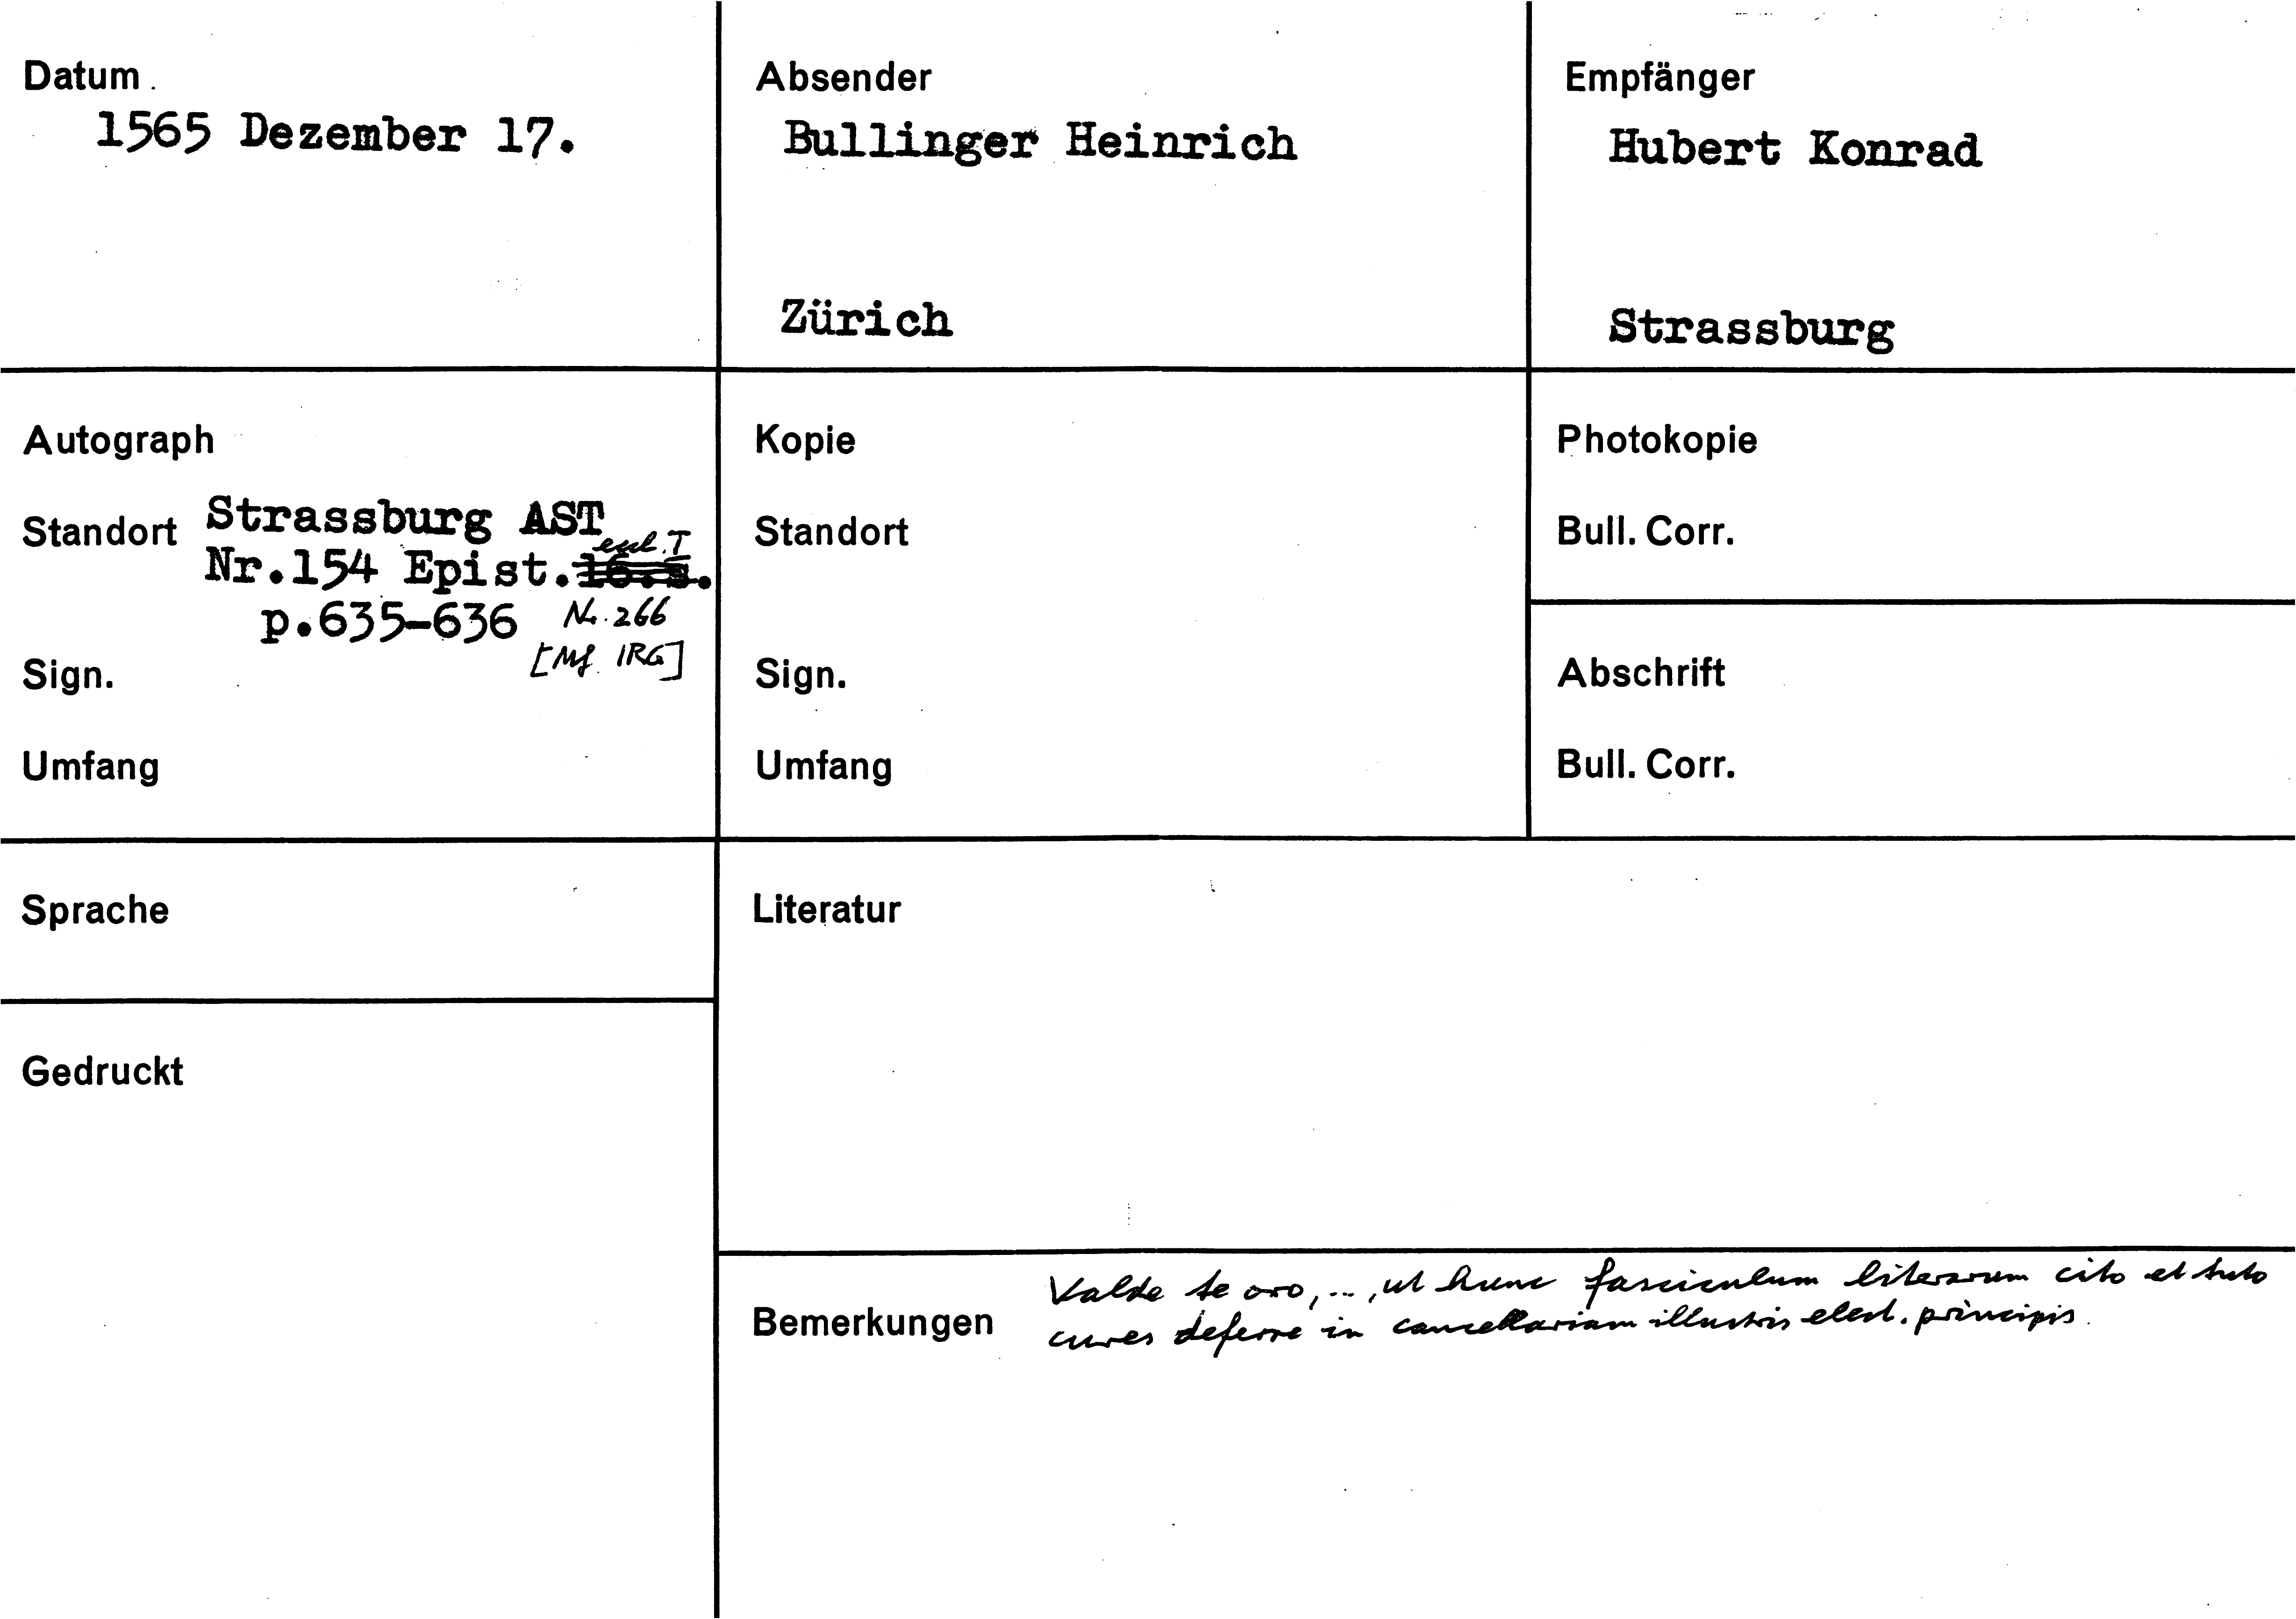 Datum
1565 Dezember 17.
Absender
Bullinger Heinrich
Zürich
Empfänger
Hubert Konrad
Strassburg
Autograph
Standort Strassburg AST
eccl. I
Nr.154 Epist.16.s.
p.635-636 Nr. 266
[Mf IRG]
Sign.
Umfang
Kopie
Standort
Sign.
Umfang
Photokopie
Bull. Corr.
Abschrift
Bull. Corr.
Sprache
Gedruckt
Literatur
Bemerkungen
Valde te oro, ..., ut hunc fasciculum literarum cito et tuto
cures deferre in cancellariam illustris elect. principis.